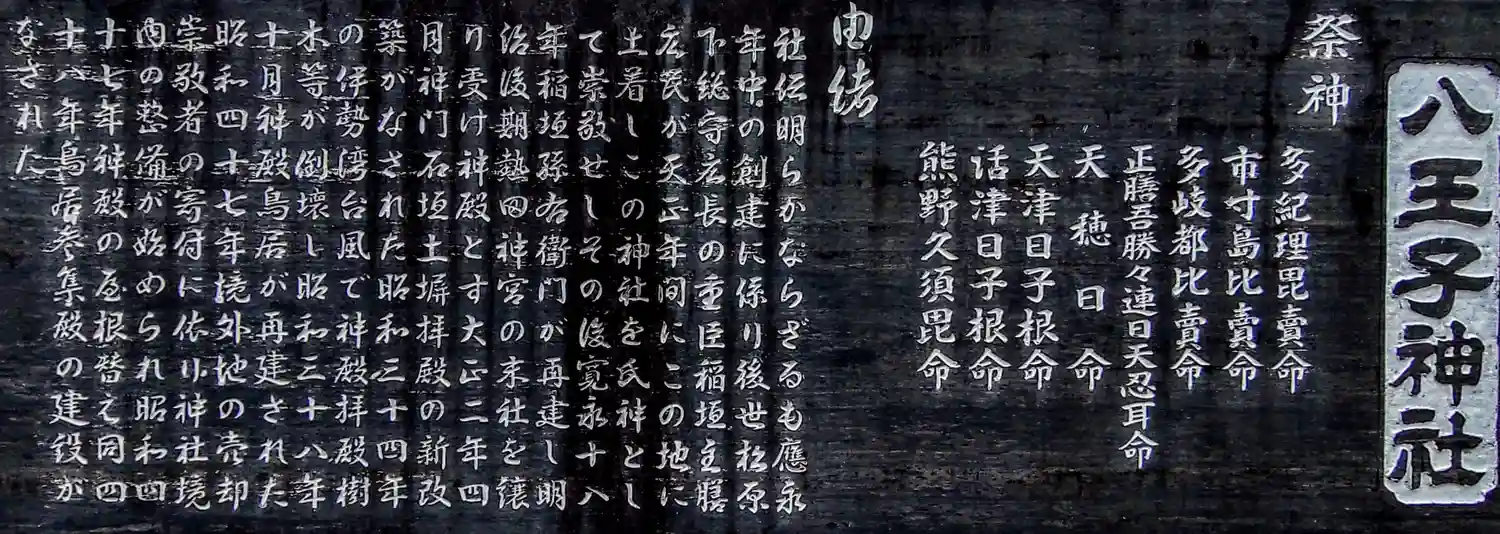 八王子神社
祭神
多紀理毘賣命
市寸島比賣命
多岐都比賣命
正勝吾勝々連日天忍耳命
天穂日命
天津日子根命
活津日子根命
熊野久須毘命
由緒
社伝明らかならざるも應永
年中の創建に係り後世松原
下総守広長の重臣稲垣主膳
広民が天正年間にこの地に
土着しこの神社を氏神とし
て崇敬せしその後寛永十八
年稲垣孫右衛門が再建し明
治後期熱田神宮の末社を譲
り受け神殿とす大正二年四
月神門石垣土塀拝殿の新改
築がなされた昭和三十四年
の伊勢湾台風で神殿拝殿樹
木等が倒壊し昭和三十八年
十月神殿鳥居が再建された
昭和四十七年境外地の売却
崇敬者の寄付に依り神社境
内の整備が始められ昭和四
十七年神殿の屋根替え同四
十八年鳥居参集殿の建設が
なされた